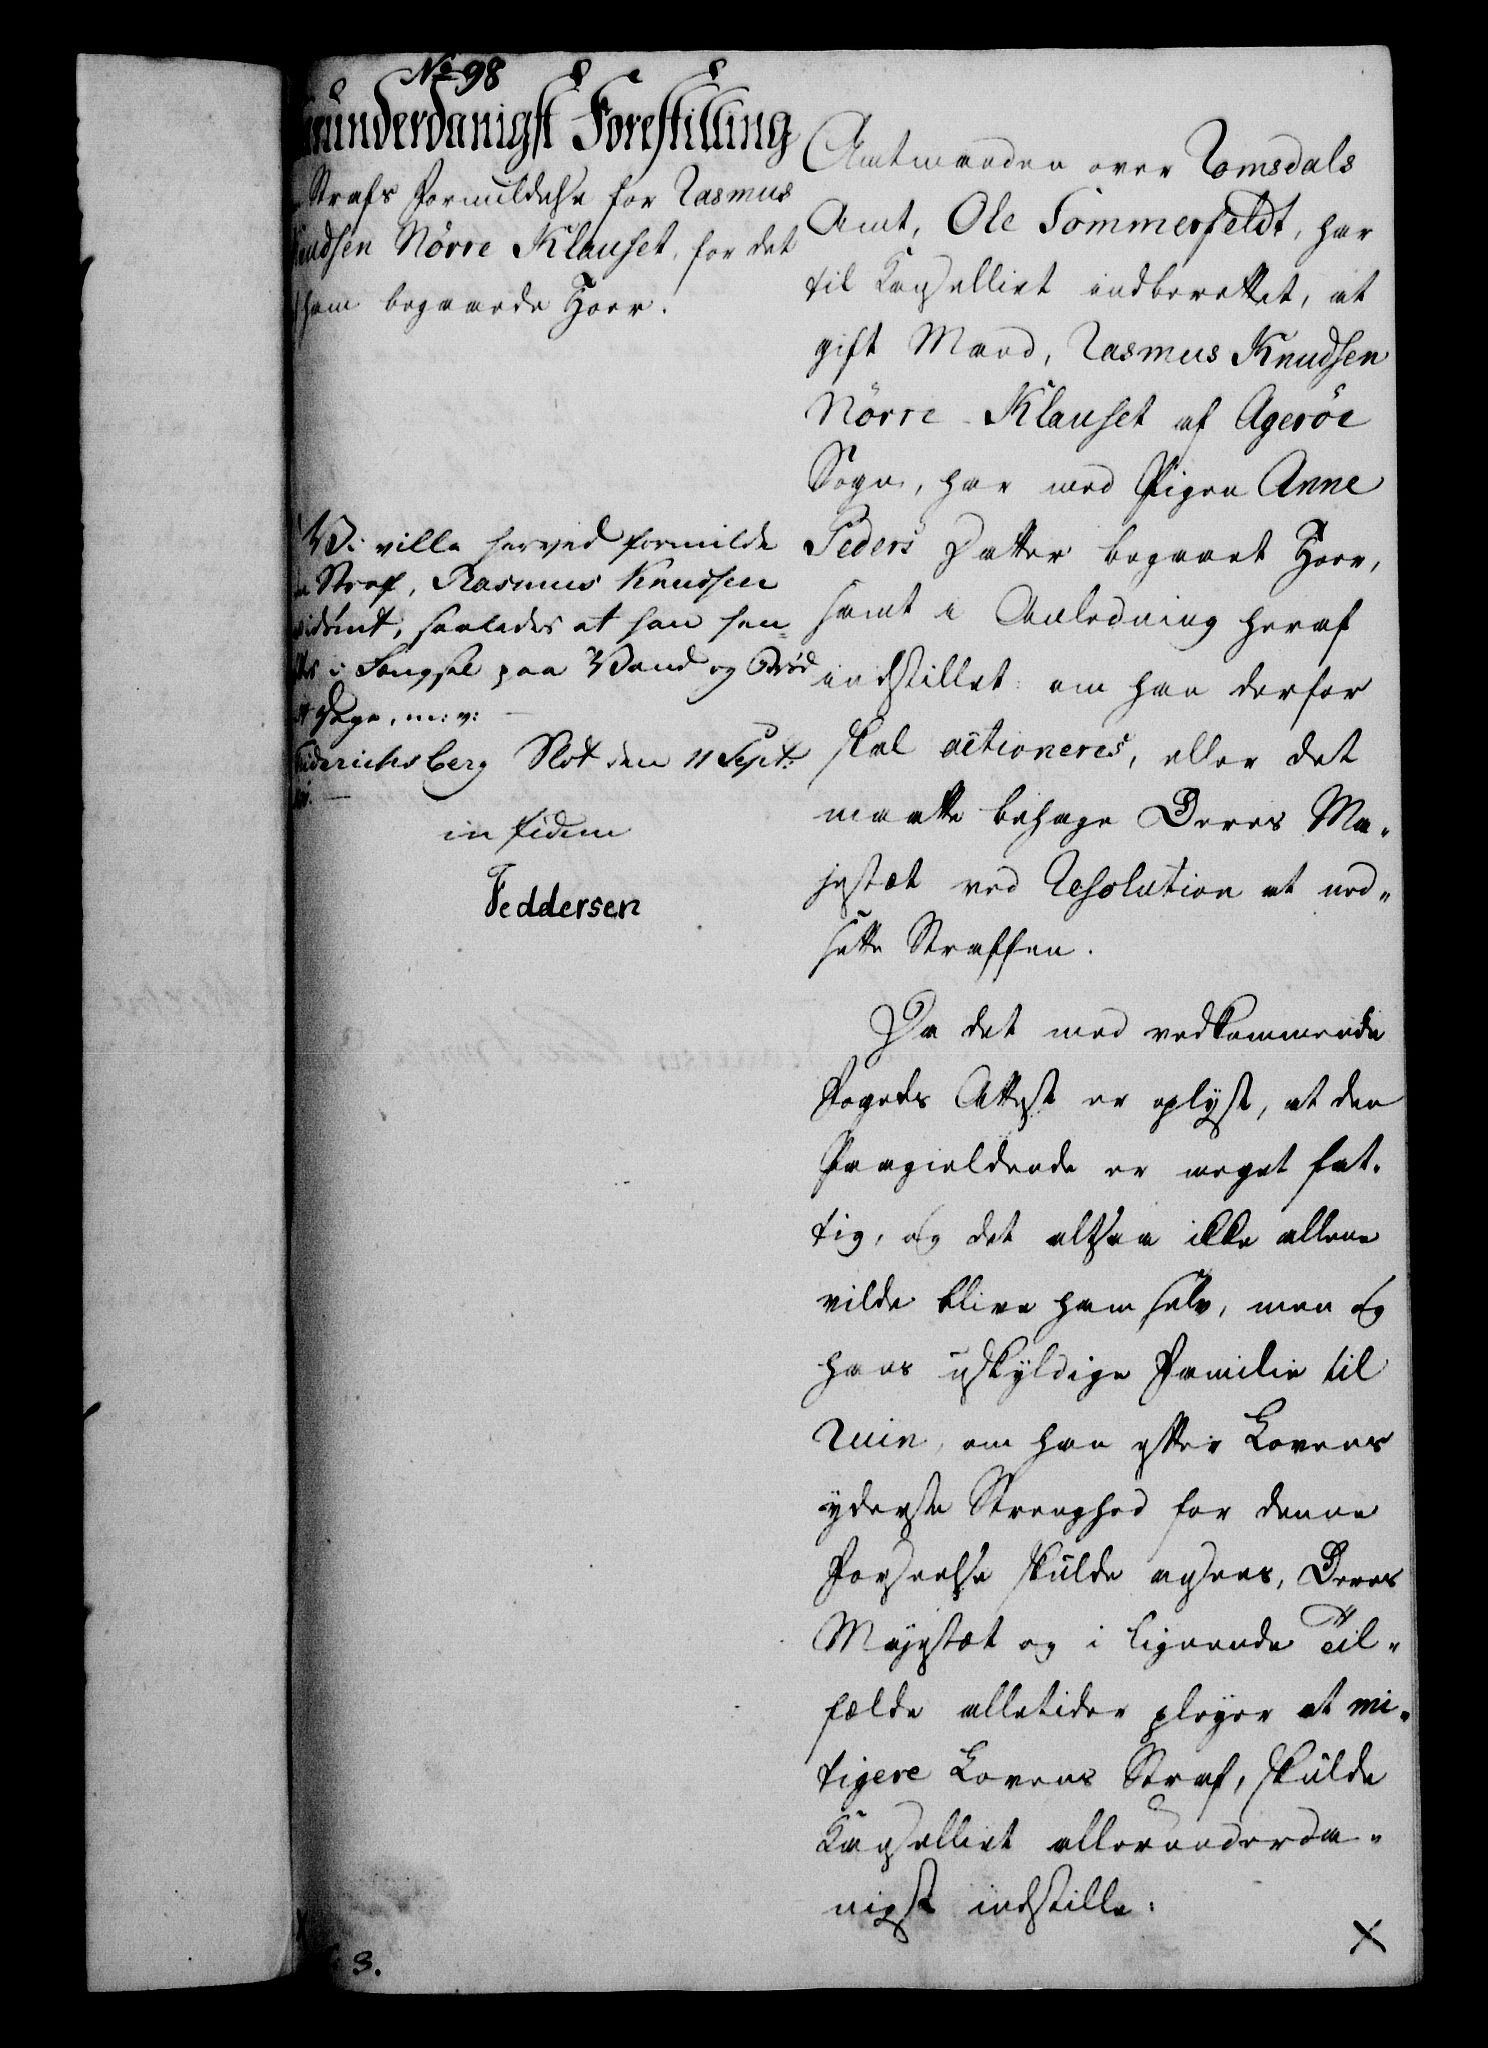 No 98
underdanigst Forestilling
Strafs Formildelse for Rasmus
Knudsen Nörre Klauset, for det
ham begaaede Hoer.
Vi ville herved formilde
Straf, Rasmus Knudsen
idömt, saaledes at han hen-
i Fængsel paa Vand og Bröd
Dage, m: v:
Friderichsberg Slot den 11 Sept:
in fidem
Feddersen
Amtmanden over Romsdals
Amt, Ole Sommerfeldt, har
til Cancelliet indberettet, at
gift Mand, Rasmus Knudsen
Nörre-Klauset af Ageröe
Sogn, har med Pigen Anne
Peders Datter begaaet Hoer,
samt i Anledning heraf
indstillet: om han derfor
skal actioneres, eller det
maatte behage Deres Ma-
jestæt ved Resolution at ned-
sætte Straffen.
Da det med vedkommende
Fogeds Attest er oplyst, at den
Paagieldende er meget fat-
tig, og det altsaa ikke allene
vilde blive ham selv, men og
hans uskyldige Familie til
Ruin, om han efter Lovens
yderste Strenghed for denne
Forseelse skulde ansees, Deres
Majestæt og i lignende Til-
fælde alletider pleyer at mi-
tigere Lovens Straf, skulde
Cancelliet allerunderda-
nigst indstille:
X
3.